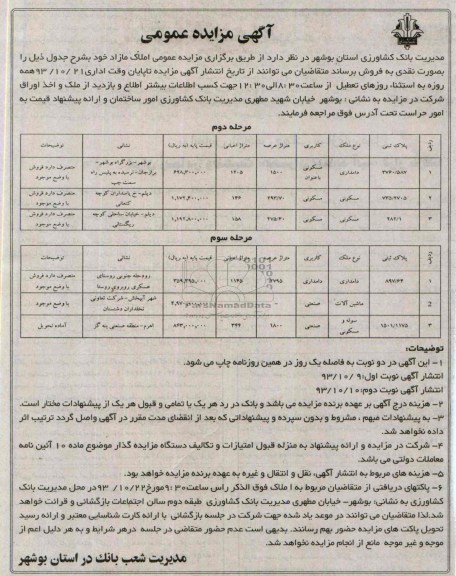 آگهی مزایده عمومی
مدیریت بانک کشاورزی استان بوشهر در نظر دارد از طریق برگزاری مزایده عمومی املاک مازاد خود بشرح جدول ذیل را
بصورت نقدی به فروش برساند متقاضیان می توانند از تاریخ انتشار آگهی مزایده تاپایان وقت اداری ۹۳/۱۰/۲۱ همه
روزه به استثناء روزهای تعطیل از ساعت ۸:۳۰ الی ۱۲:۳۰ جهت کسب اطلاعات بیشتر اطلاع و بازدید از ملک و اخذ اوراق
شرکت در مزایده به نشانی : بوشهر خیابان شهید مطهری مدیریت بانک کشاورزی امور ساختمان و ارائه پیشنهاد قیمت به
امور حراست تحت آدرس فوق مراجعه فرمایند.
مرحله دوم
ردیف پلاک ثبتی نوع ملک کاربری متراژ عرصه متراژ اعیانی قیمت پایه (به ریال) نشانی توضیحات
۱ ۳۷۴۰/۵۸۷ دامداری مسکونی باعنوان ۱۵۰۰ ۱۲۰۵ بوشهر- بزرگراه بوشهر- برازجان- نرسیده به پلیس راه سمت چپ متصرف دارد فروش با وضع موجود
۲ مسکونی مسکونی ۲۹۳/۷۰ ۱۴۴ دیلم- خ پاسداران کوچه کنعانی متصرف دارد فروش با وضع موجود
۳ ۲۸۲/۱ مسکونی مسکونی ۲۷۵/۴۰ ۱۵۸ دیلم- خیابان ساحلی کوچه ریگستانی متصرف دارد فروش با وضع موجود
مرحله سوم
ردیف پلاک ثبتی نوع ملک کاربری متراژ عرصه متراژ اعیانی قیمت پایه (به ریال) نشانی توضیحات
۱ ۸۹۷/۶۴ دامداری دامداری ۷۷۹۵ ۱۱۴۵ رودحله جنوبی روستای عسکری روبروی روستا متصرف دارد فروش با وضع موجود
۲ - ماشین آلات صنعتی - شهر آبپخش- شرکت تعاونی نخلداران دشتستان با وضع موجود
۳ ۱۵۰۱/۱۱۷۵ سوله و مسکونی صنعتی ۱۸۰۰ ۳۴۴ اهرم- منطقه صنعتی بنه گز آماده تحویل
توضیحات:
۱- این آگهی در دو نوبت به فاصله یک روز در همین روزنامه چاپ می شود.
انتشار آگهی نوبت اول: ۹۳/۱۰/۹
انتشار آگهی نوبت دوم: ۹۳/۱۰/۱۰
۲- هزینه درج آگهی بر عهده برنده مزایده می باشد و بانک در رد هر یک یا تمامی و قبول هر یک از پیشنهادات مختار است.
۳- به پیشنهادات مبهم ، مشروط و بدون سپرده و پیشنهاداتی که بعد از انقضای مدت مقرر در آگهی واصل گردد ترتیب اثر
داده نخواهد شد.
۴- شرکت در مزایده و ارائه پیشنهاد به منزله قبول امتیازات و تکالیف دستگاه مزایده گذار موضوع ماده ۱۰ آئین نامه
معاملات دولتی می باشد.
۵- هزینه های مربوط به انتشار آگهی، نقل و انتقال و غیره به عهده برنده مزایده خواهد بود.
۶- پاکتهای دریافتی از متقاضیان مربوط به املاک فوق الذکر راس ساعت ۹:۳۰ مورخ ۹۳/۱۰/۲۲ در محل مدیریت بانک
کشاورزی به نشانی: بوشهر- خیابان مطهری مدیریت بانک کشاورزی طبقه دوم سالن اجتماعات بازگشائی و قرائت خواهد
شد.لذا متقاضیان می توانند در موعد یاد شده جهت شرکت در جلسه بازگشائی با ارائه کارت شناسایی معتبر و ارائه رسید
تحویل پاکت های مزایده حضور بهم رسانند. بدیهی است عدم حضور متقاضی در جلسه درهر شرایط و به هر دلیل اعم از
موجه و غیر موجه مانع از انجام مزایده نخواهد شد.
مدیریت شعب بانک در استان بوشهر